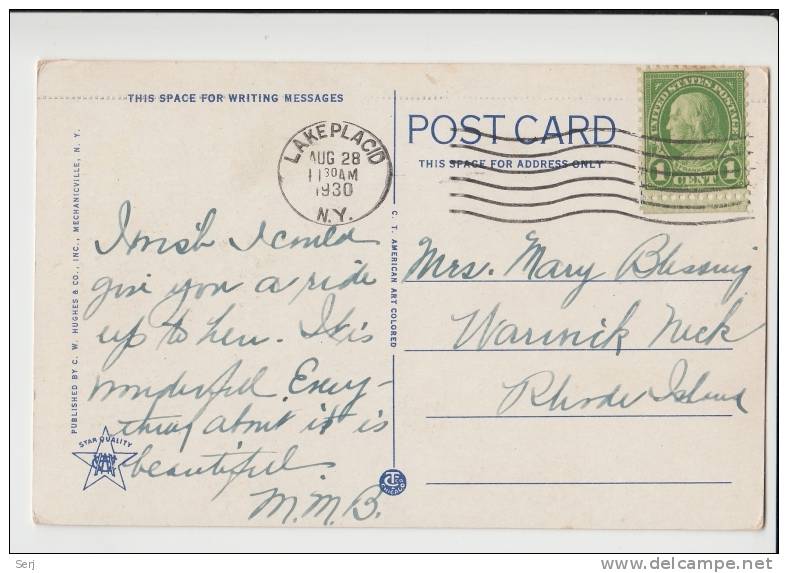 THIS SPACE FOR WRITING MESSAGES
POST CARD
THIS SPACE FOR ADDRESS ONLY
UNITED STATES POSTAGE
FRANKLIN
1 CENT 1
LAKE PLACID
AUG 28
11 30 AM
1930
N.Y.
I wish I could
give you a ride
up to hear. It is
wonderful. Every-
thing about it is
beautiful.
M.M.B.
Mrs. Mary Blessing
Warwick Neck
Rhode Island
PUBLISHED BY C. W. HUGHES & CO., INC., MECHANICVILLE, N. Y.
C. T. AMERICAN ART COLORED
STAR QUALITY
CHICAGO
Serj
delcampe.net